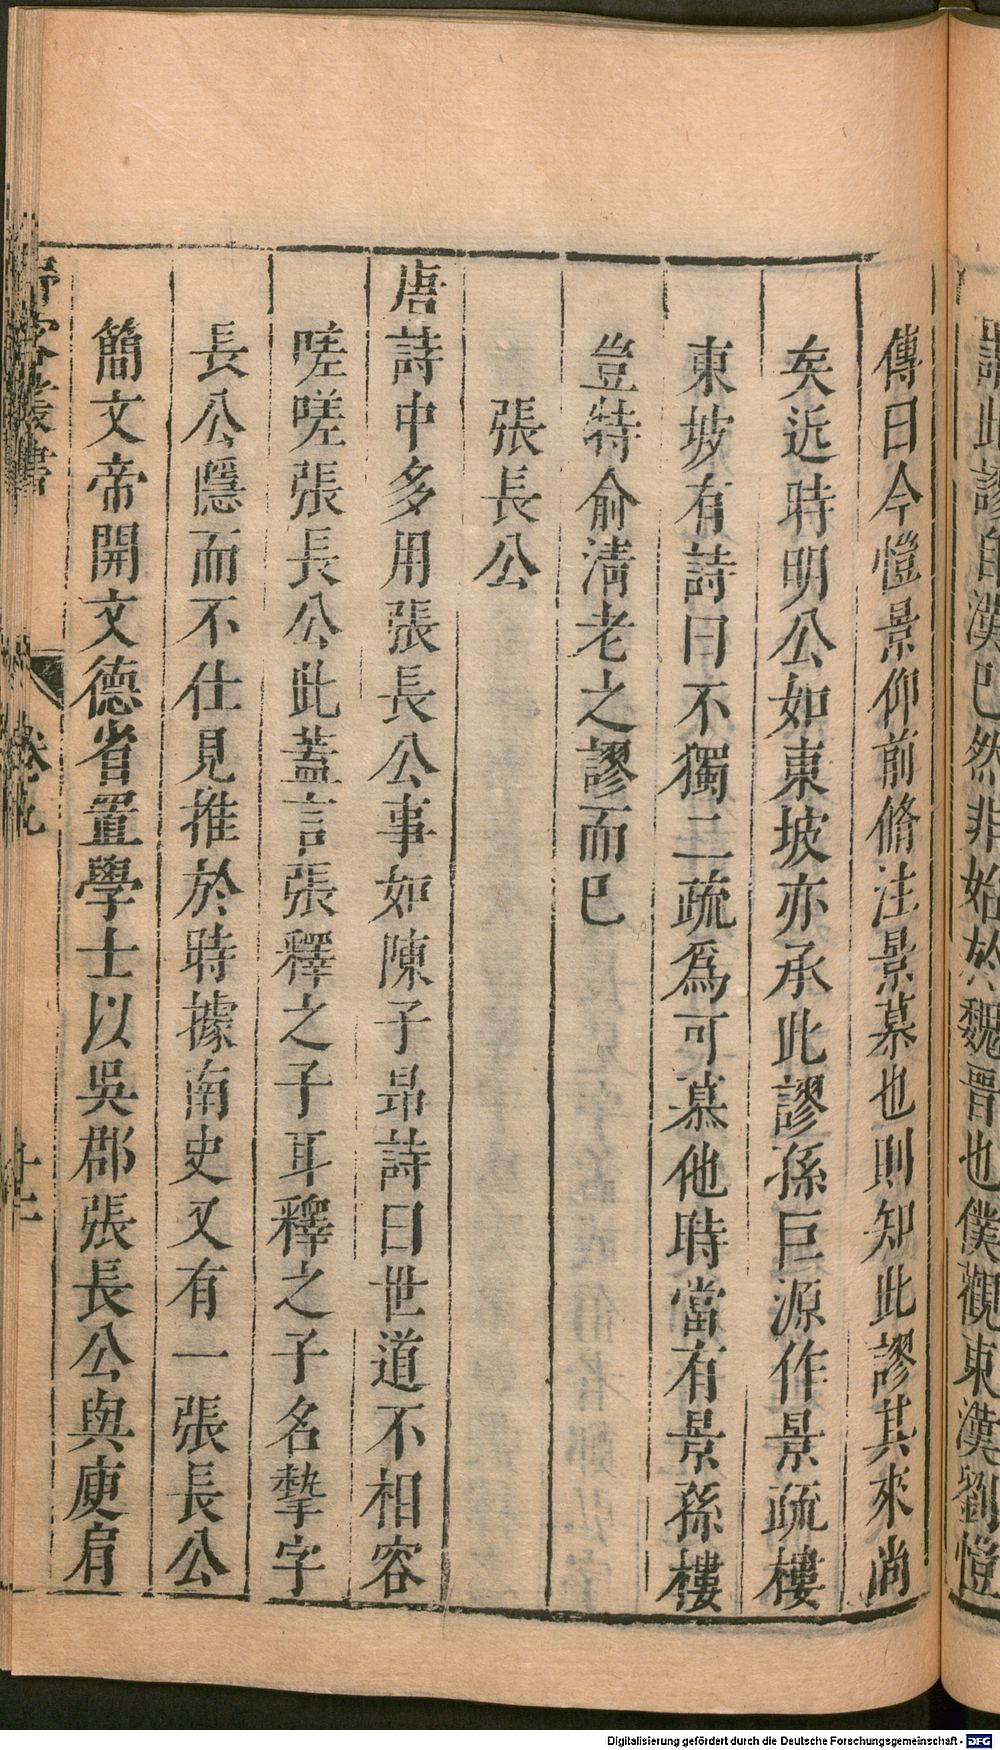 謂此謬自漢已然非始於魏晉也僕觀東漢劉愷
傳曰今愷景仰前脩注景慕也則知此謬其來尚
矣近時明公如東坡亦承此謬孫巨源作景疏樓
東坡有詩曰不獨二疏爲可慕他時當有景孫樓
豈特俞淸老之謬而已
張長公
唐詩中多用張長公事如陳子昻詩曰世道不相容
嗟嗟張長公此蓋言張釋之子耳釋之子名摯字
長公隱而不仕見推於時據南史又有一張長公
簡文帝開文德省置學士以吳郡張長公與庾肩
野客叢書
卷九
十二
Digitalisierung gefördert durch die Deutsche Forschungsgemeinschaft - DFG